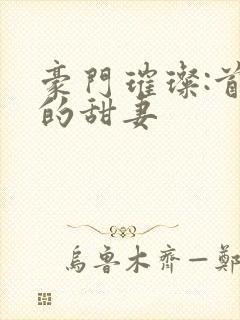 豪門璀璨:首
的甜妻
烏魯木齊—鄭